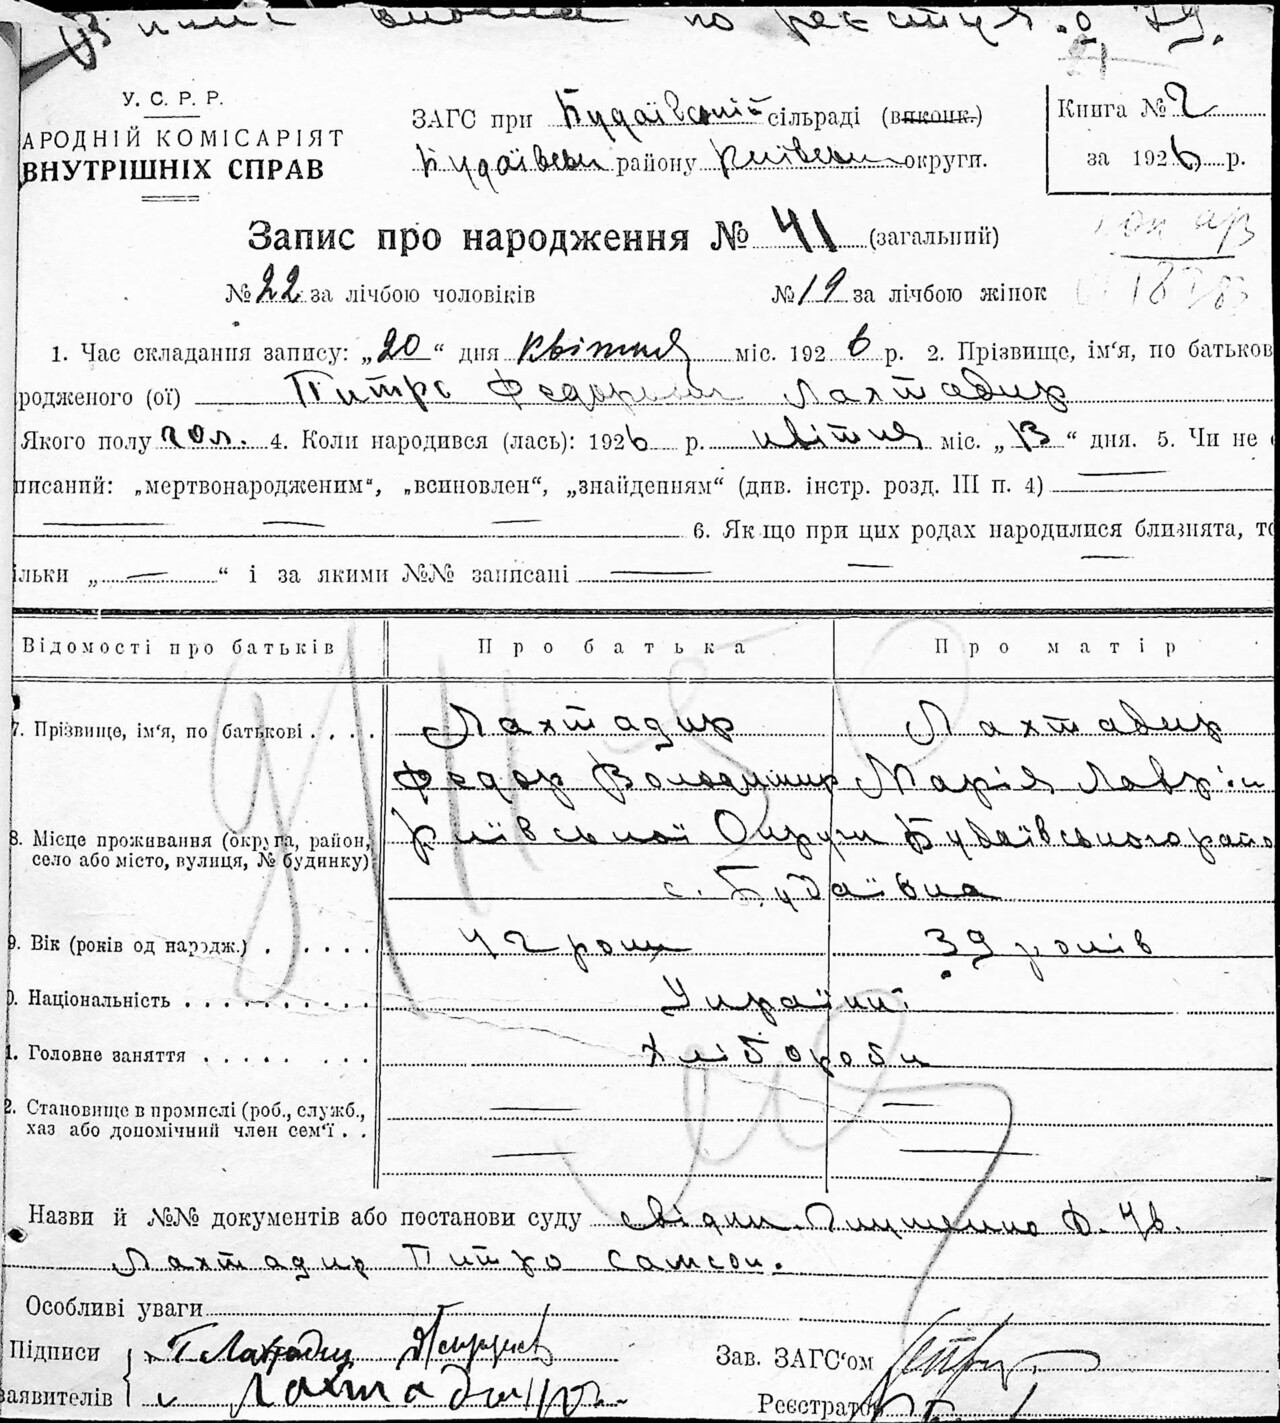 по реєстру № 79.
У. С. Р. Р.
АРОДНІЙ КОМІСАРІЯТ
ВНУТРІШНІХ СПРАВ
ЗАГС при Будаївській сільраді (виконк.)
Будаївськ району Київськ округи.
Книга № 2
за 1926 р.
Запис про народження № 41 (загальний)
№ 22 за лічбою чоловіків
№ 19 за лічбою жінок
1. Час складання запису: „20“ дня квітня міс. 1926 р. 2. Прізвище, ім‘я, по батьков
родженого (ої) Питро Федорович Лахтадир
Якого полу чол. 4. Коли народився (лась): 1926 р. квітня міс. „13“ дня. 5. Чи не є
писаний: „мертвонародженим“, „всиновлен“, „знайденням“ (див. інстр. розд. III п. 4)
6. Якщо при цих родах народилися близнята, то
ільки „—“ і за якими №№ записані
Відомості про батьків
Про батька
Про матір
7. Прізвище, ім‘я, по батькові . . . .
Лахтадир
Лахтадир
Федор Володимир
Марія Лавр‘ін
8. Місце проживання (округа, район,
село або місто, вулиця, № будинку)
Київської Округи Будаївського райо
с. Будаївка
9. Вік (років од народж.) . . . . . .
42 роки
39 років
0. Національність . . . . . . . . . .
Українці
1. Головне заняття . . . . . . . .
Хлібороби
2. Становище в промислі (роб., служб.,
хаз або допомічний член сем‘ї . .
Назви й №№ документів або постанови суду свідки Глущенко Ф. Ів.
Лахтадир Питро Самсон.
Особливі уваги
Підписи
заявителів
Лахтадир
Зав. ЗАГС‘ом
Реєстратор